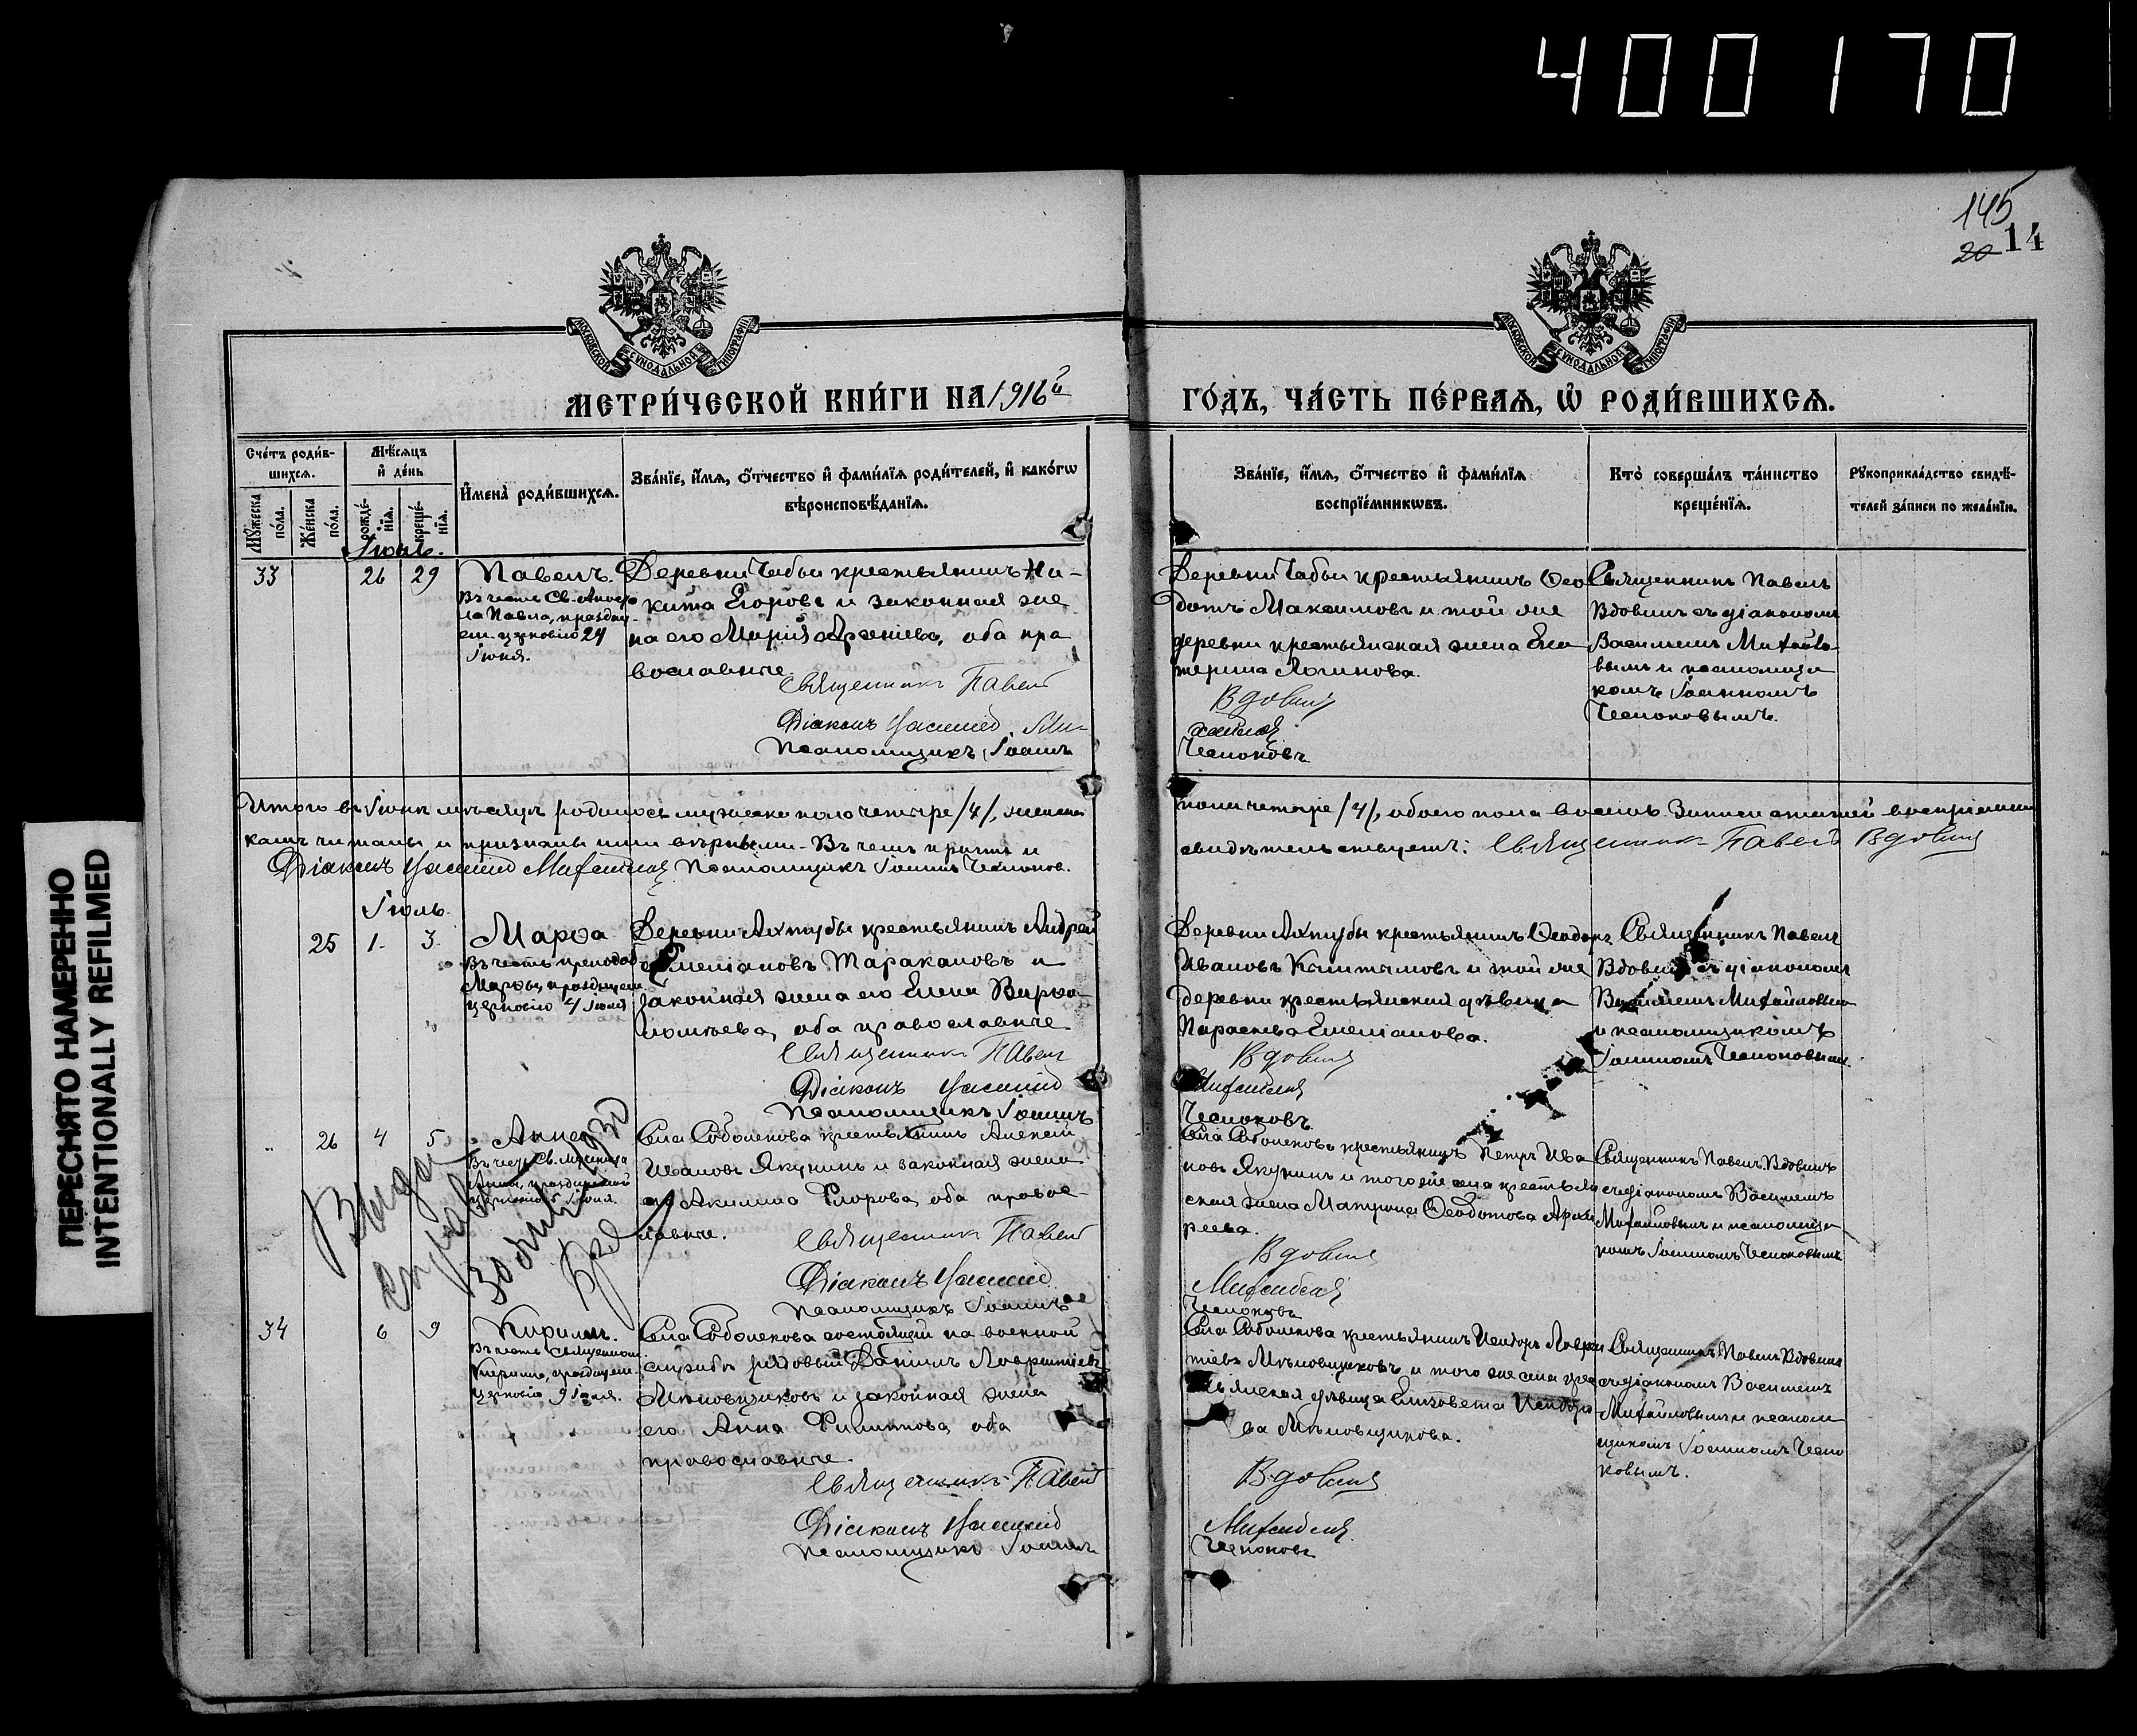 400170
ПЕРЕСНЯТО НАМЕРЕННО
INTENTIONALLY REFILMED
145
20 14
МОСКОВСКОЙ СУНОДАЛЬНОЙ ТИПОГРАФІИ
МОСКОВСКОЙ СУНОДАЛЬНОЙ ТИПОГРАФІИ
МЕТРИ́ЧЕСКОЙ КНИ́ГИ НА 1916й
ГО́ДЪ, ЧА́СТЬ ПЕ́РВАѦ, Ѡ҆ РОДИ́ВШИХСѦ.
Сче́тъ роди́в-
шихсѧ.
Мѣ́сѧцъ
и҆ де́нь
Мꙋ́жеска по́ла.
Же́нска по́ла.
рожде́-
нїѧ.
креще́-
нїѧ.
И҆мена̀ роди́вшихсѧ.
Зва́нїе, и҆́мѧ, ѻ҆́тчество и҆ фами́лїѧ роди́телей, и҆ како́гѡ
вѣроисповѣ́данїѧ.
Зва́нїе, и҆́мѧ, ѻ҆́тчество и҆ фами́лїѧ
воспрїе́мникѡвъ.
Кто̀ соверша́лъ та́инство
креще́нїѧ.
Рꙋкоприкла́дство свидѣ́-
телей за́писи по жела́нїю.
Іюнь.
33 26 29
Павелъ.
Въ честь Св. Апосто
ла Павла, праздну-
ем. церковію 29
Іюня.
Деревни Чабьи крестьянинъ Ни-
кита Егоровъ и законная же
на его Марія Арсеніева, оба пра
вославные.
Священникъ Павелъ
Діаконъ Василій Ми-
Псаломщикъ Іоаннъ
Деревни Чабьи крестьянинъ Ѳео
дотъ Максимовъ и той же
деревни крестьянская жена Ека
терина Логинова.
Вдовинъ
хайловъ
Чесноковъ
Священникъ Павелъ
Вдовинъ съ діакономъ
Василіемъ Михайло-
вымъ и псаломщи
комъ Іоанномъ
Чесноковымъ.
Итого въ Іюнѣ мѣсяцѣ родилось мужеска пола четыре /4/, женска
пола четыре /4/, обоего пола восемь. Записи статей воспріемни
камъ читаны и признаны ими вѣрными. Въ чемъ причтъ и
свидѣтельствуетъ: Священникъ Павелъ Вдовинъ
Діаконъ Василій Михайловъ, Псаломщикъ Іоаннъ Чесноков.
Іюль.
25 1. 3.
Марѳа
Въ честь преподоб
Марѳы, празднуем
церковію 4 Іюля
Деревни Ахтубы крестьянинъ Андрей
Емеліановъ Таракановъ и
законная жена его Елена
оба православные.
Священникъ Павелъ
Діаконъ Василій
Псаломщикъ Іоаннъ
Деревни Ахтубы крестьянинъ Ѳеодоръ
Ивановъ и той же
деревни крестьянская дѣвица
Параскева Емеліанова.
Вдовинъ
Михайловъ
Чесноковъ
Священникъ Павелъ
Вдовинъ съ діакономъ
Василіемъ Михайловымъ
и псаломщикомъ
Іоанномъ Чесноковымъ.
" 26 4 5
Анна
Въ честь Св. мученицы
Анны, празднуемой
церковію 5 Іюля.
Села Соболекова крестьянинъ Алексѣй
Ивановъ Якунинъ и законная жена
его Акилина Егорова, оба право-
славные.
Священникъ Павелъ
Діаконъ Василій
Псаломщикъ Іоаннъ
Села Соболекова крестьянинъ Петръ Ива
новъ Якунинъ и того же села крестьян
ская жена Матрона Ѳеодотова
Вдовинъ
Михайловъ
Чесноковъ
Священникъ Павелъ Вдовинъ
съ діакономъ Василіемъ
Михайловымъ и псаломщи
комъ Іоанномъ Чесноковымъ
34 6 9
Кириллъ.
Въ честь священном.
Кирилла, празднуем.
церковію 9 Іюля.
Села Соболекова состоящій на военной
службѣ рядовый Даніилъ Лаврентіевъ
Мѣловщиковъ и законная жена
его Анна Филиппова, оба
православные.
Священникъ Павелъ
Діаконъ Василій
Псаломщикъ Іоаннъ
Села Соболекова крестьянинъ Исидоръ Лаврен
тіевъ Мѣловщиковъ и того же села крес
тьянская дѣвица Елизавета Исидоро
ва Мѣловщикова.
Вдовинъ
Михайловъ
Чесноковъ
Священникъ Павелъ Вдовинъ
съ діакономъ Василіемъ
Михайловымъ и псалом
щикомъ Іоанномъ Чесно
ковымъ.